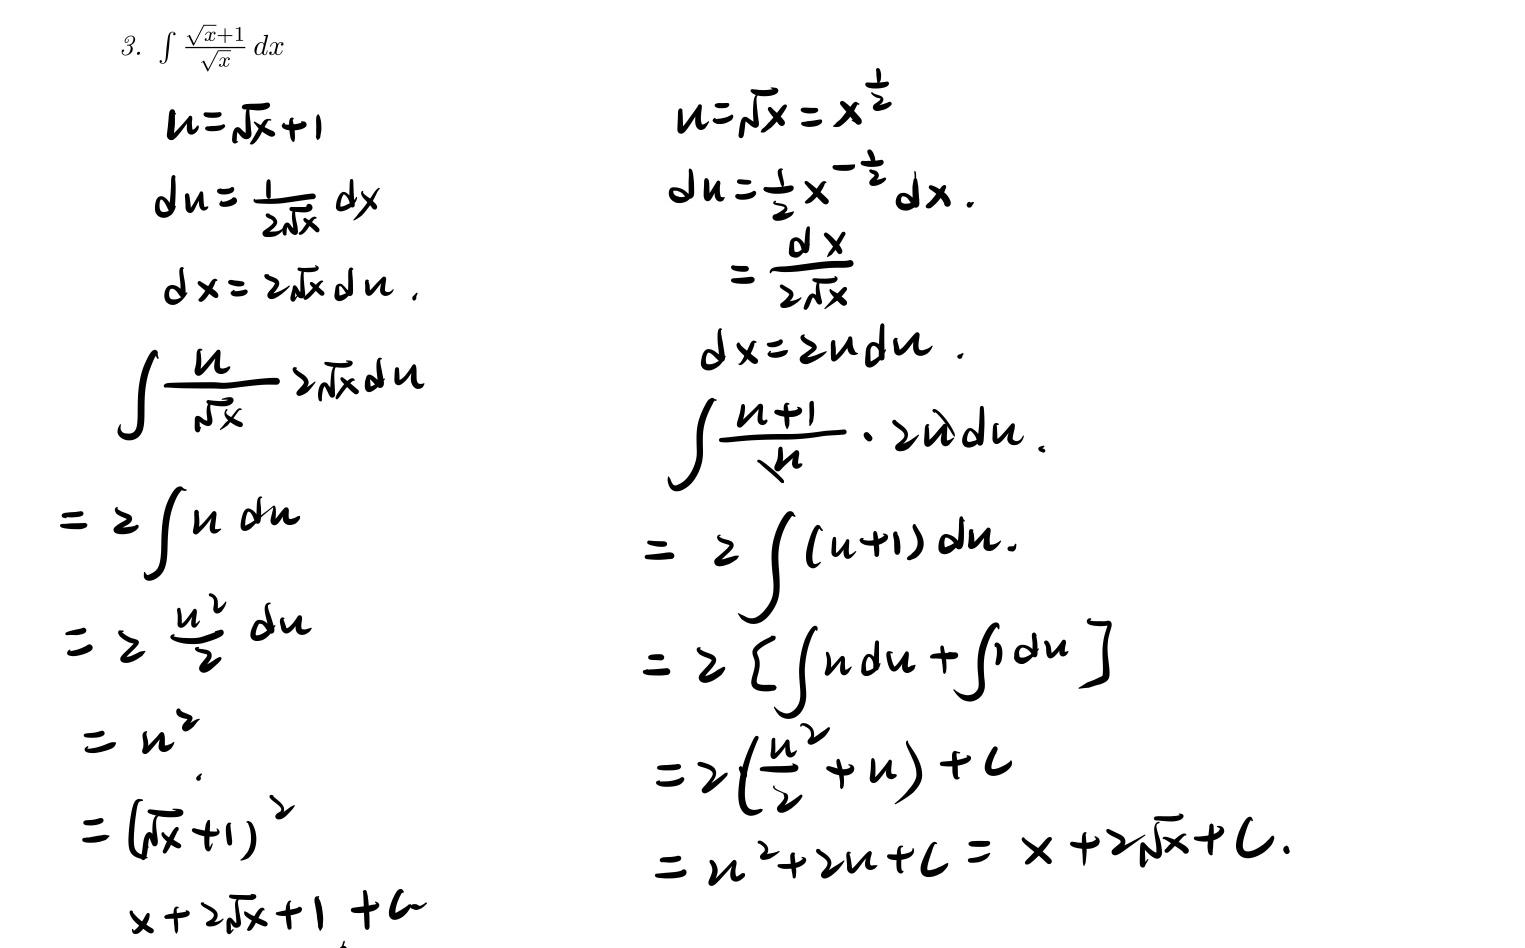 3. ∫ (√x+1)/√x dx
u=√x+1
du = 1/(2√x) dx
dx = 2√x du .
∫ u/√x 2√x du
= 2 ∫ u du
= 2 u²/2 du
= u² .
= (√x+1)²
x+2√x+1 +C
u=√x = x^(1/2)
du = 1/2 x^(-1/2) dx .
= dx/(2√x)
dx = 2u du .
∫ (u+1)/u · 2u du .
= 2 ∫ (u+1) du .
= 2 [ ∫ u du + ∫ 1 du ]
= 2 (u²/2 + u) + C
= u² + 2u + C = x + 2√x + C .